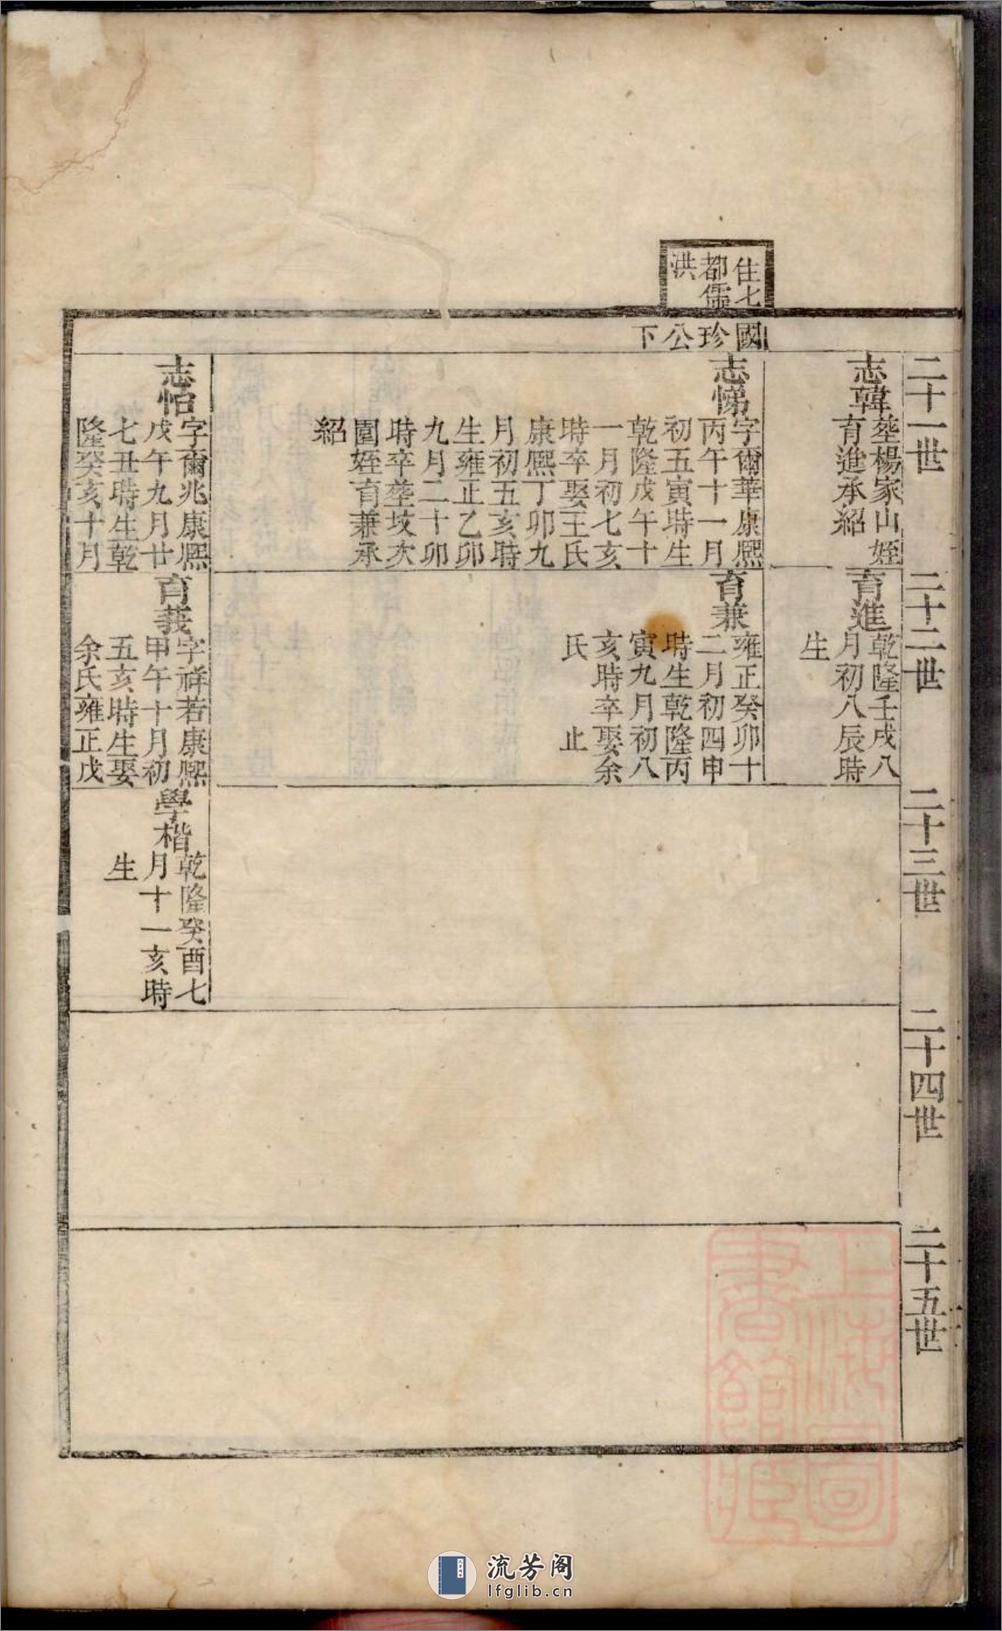 住七
都儒
洪
國珍公下
二十一世
志韓
塟楊家山姪
育進承紹
志悌
字爾華康熈
丙午十一月
初五寅時生
乾隆戊午十
一月初七亥
時卒娶王氏
康熈丁卯九
月初五亥時
生雍正乙卯
九月二十卯
時卒塟坟次
圍姪育兼承
紹
志怡
字爾兆康熈
戊午九月廿
七丑時生乾
隆癸亥十月
二十二世
育進
乾隆壬戌八
月初八辰時
生
育兼
雍正癸卯十
二月初四申
時生乾隆丙
寅九月初八
亥時卒娶余
氏 止
育義
字祥若康熈
甲午十月初
五亥時生娶
余氏雍正戊
二十三世
學楷
乾隆癸酉七
月十一亥時
生
二十四世
二十五世
上海圖
書館藏
流芳阁
lfglib.cn